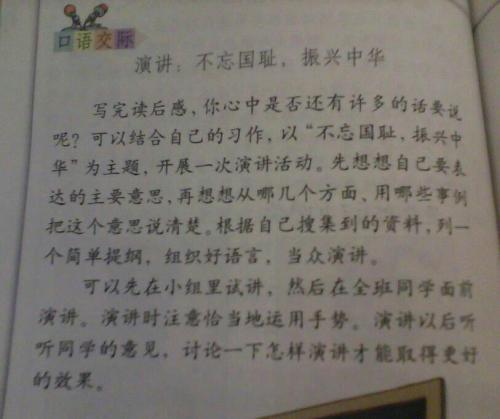 口语交际
演讲：不忘国耻，振兴中华
写完读后感，你心中是否还有许多的话要说
呢？可以结合自己的习作，以“不忘国耻，振兴中
华”为主题，开展一次演讲活动。先想想自己要表
达的主要意思，再想想从哪几个方面、用哪些事例
把这个意思说清楚。根据自己搜集到的资料，列一
个简单提纲，组织好语言，当众演讲。
可以先在小组里试讲，然后在全班同学面前
演讲。演讲时注意恰当地运用手势。演讲以后听
听同学的意见，讨论一下怎样演讲才能取得更好
的效果。